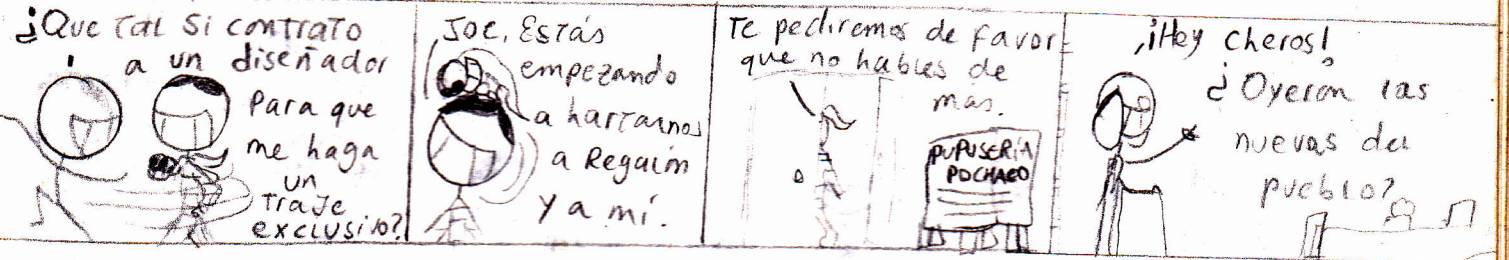 ¿Que tal si contrato
a un diseñador
para que
me haga
un
traje
exclusivo?
Joe, Estás
empezando
a hartarnos
a Regaim
y a mí.
Te pediremos de favor
que no hables de
más.
PUPUSERÍA
POCHACO
¡Hey cheros!
¿Oyeron las
nuevas del
pueblo?